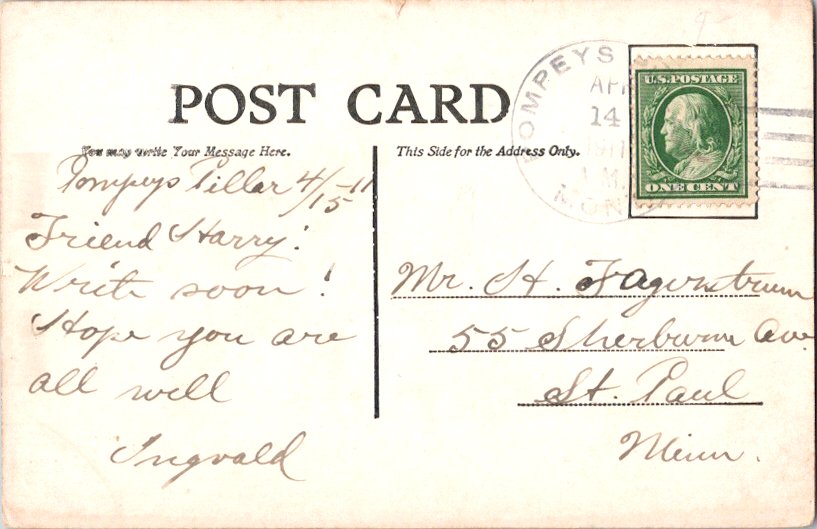 POST CARD
You may write Your Message Here.
This Side for the Address Only.
POMPEYS
APR
14
1911
M.
MON
U.S. POSTAGE
ONE CENT
Pompeys Pillar 4/15-11
Friend Harry!
Write soon!
Hope you are
all well
Ingvald
Mr. H. Fagerstrum
55 Sherburn Ave.
St. Paul
Minn.